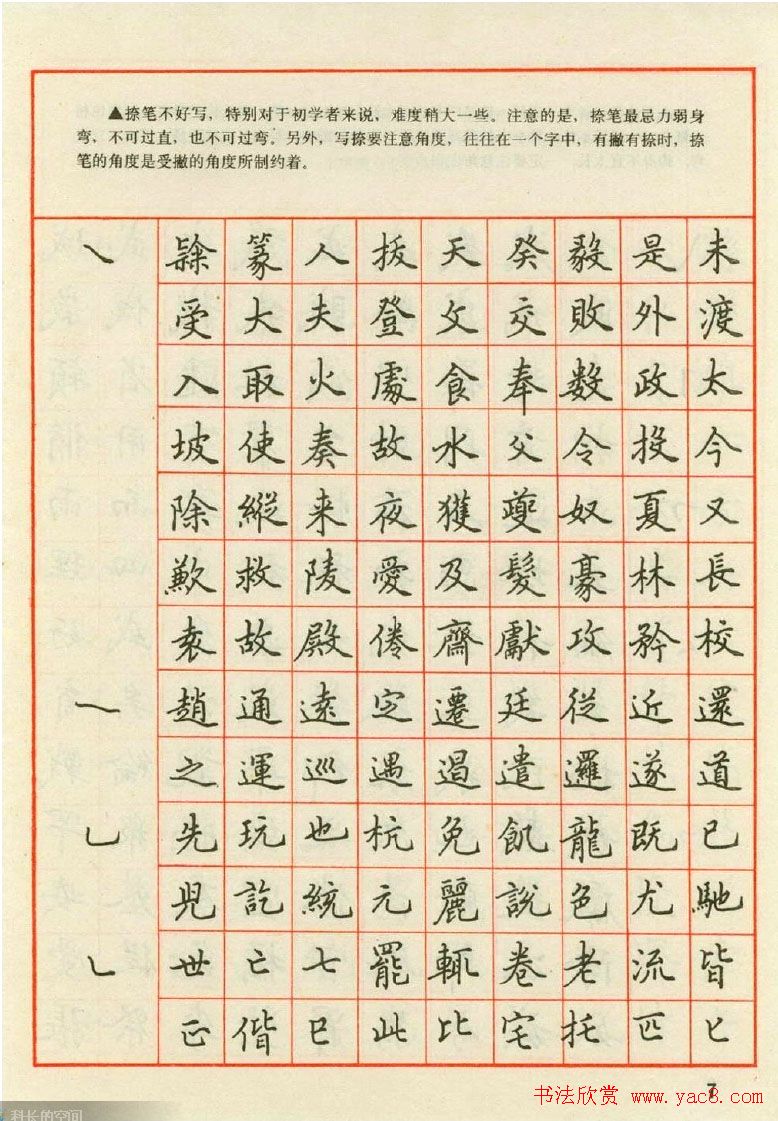 ▲捺笔不好写，特别对于初学者来说，难度稍大一些。注意的是，捺笔最忌力弱身
弯，不可过直，也不可过弯。另外，写捺要注意角度，往往在一个字中，有撇有捺时，捺
笔的角度是受撇的角度所制约着。
㇏ 篆 人 拔 天 癸 毅 是 未
受 大 夫 登 文 交 敗 外 渡
入 取 火 處 食 奉 数 政 太
坡 使 奏 故 水 父 令 投 今
除 縱 来 夜 獲 夔 奴 夏 又
歉 救 陵 愛 及 髮 豪 林 長
袁 故 殿 倦 齋 獻 攻 矜 校
趙 通 遠 定 遷 廷 從 近 還
之 運 巡 遇 遏 遣 邏 遂 道
乚 先 玩 也 杭 免 飢 龍 既 已
兕 訖 統 元 麗 說 色 尤 馳
世 亡 七 罷 輒 卷 老 流 皆
正 偕 巳 此 比 宅 托 匹 匕
7
书法欣赏 www.yac8.com
科长的空间